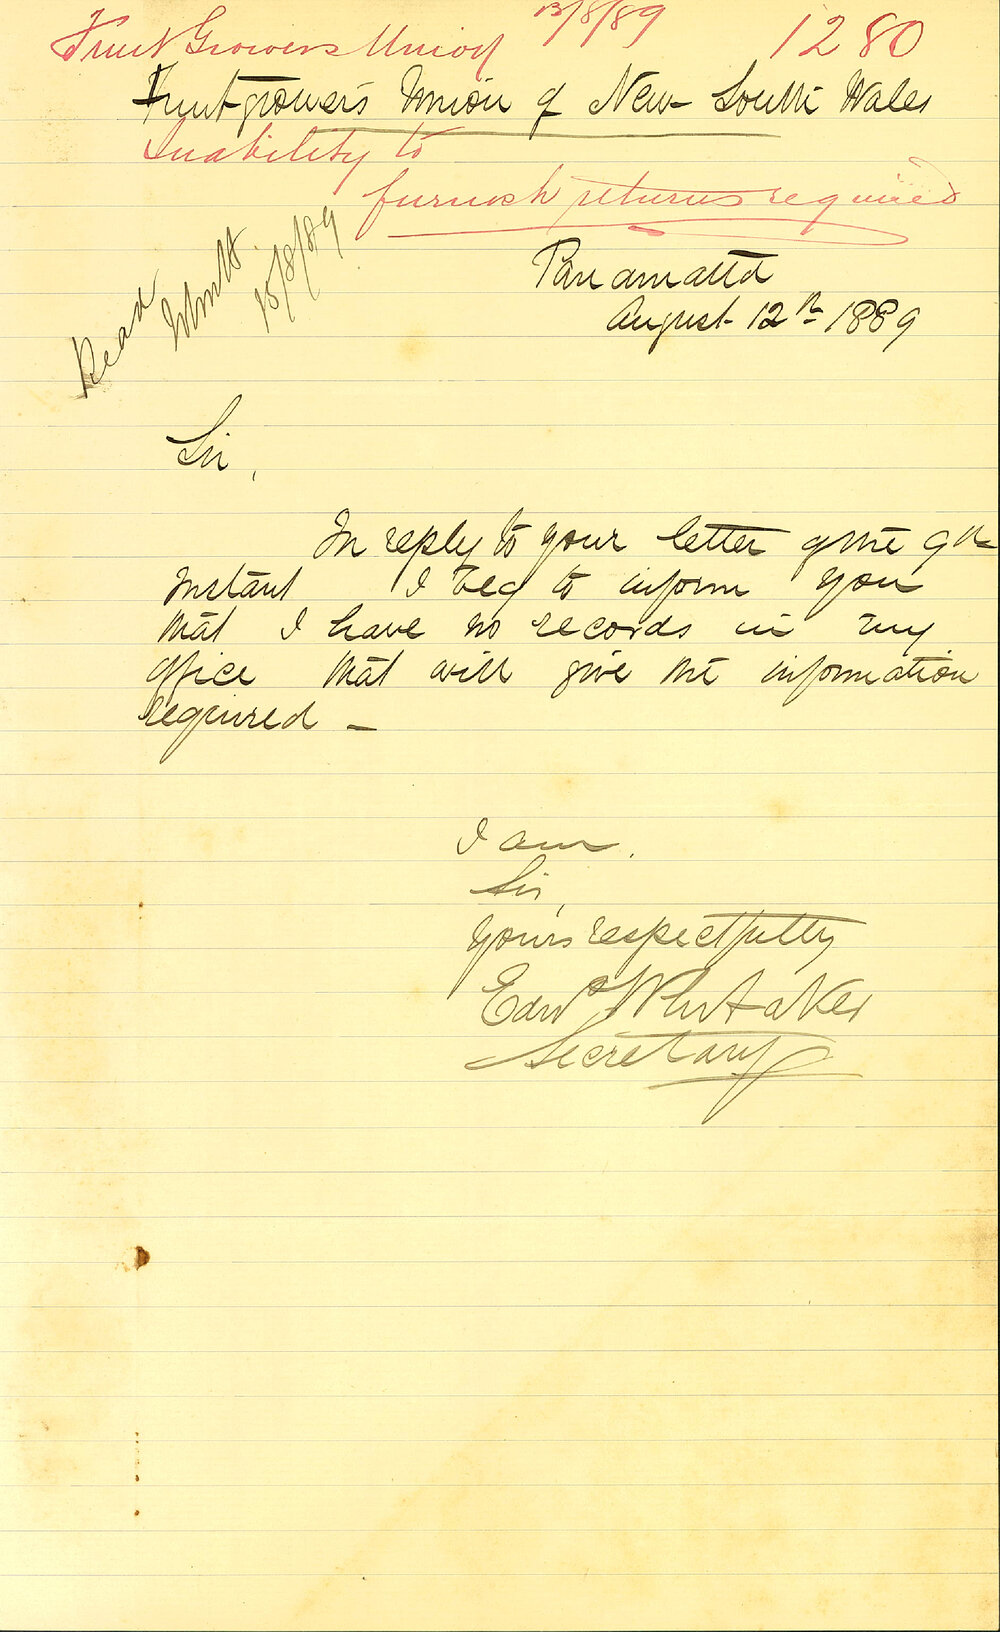 13/8/89
Fruit Growers Union 1280
Fruitgrower's Union of New South Wales
Inability to
furnish returns required
Read
15/8/89
Parramatta
August 12th 1889
Sir,
In reply to your letter of the 9th
Instant I beg to inform you
that I have no records in my
office that will give the information
required –
I am.
Sir,
Yours respectfully
Edwd Whitaker
Secretary